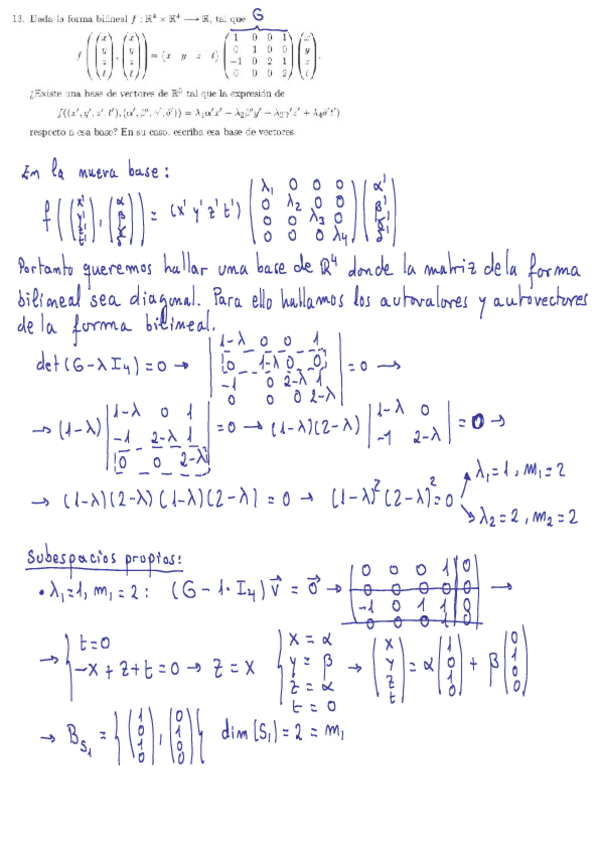 13. Dada la forma bilineal f : ℝ⁴ × ℝ⁴ ⟶ ℝ, tal que G
f((x y z t), (x y z t)) = (x y z t) (1 0 0 1 / 0 1 0 0 / −1 0 2 1 / 0 0 0 2) (x y z t).
¿Existe una base de vectores de ℝ⁵ tal que la expresión de
f((x′, y′, z′, t′), (α′, β′, γ′, δ′)) = λ₁α′x′ − λ₂β′y′ − λ₃γ′z′ + λ₄δ′t′
respecto a esa base? En su caso, escriba esa base de vectores.
En la nueva base:
f((x' y' z' t'), (α β γ δ)) = (x' y' z' t') (λ₁ 0 0 0 / 0 λ₂ 0 0 / 0 0 λ₃ 0 / 0 0 0 λ₄) (α' β' γ' δ')
Portanto queremos hallar una base de ℝ⁴ donde la matriz de la forma
bilineal sea diagonal. Para ello hallamos los autovalores y autovectores
de la forma bilineal.
det(G-λI₄)=0 → |1-λ 0 0 1 / 0 1-λ 0 0 / -1 0 2-λ 1 / 0 0 0 2-λ| = 0 →
→ (1-λ) |1-λ 0 1 / -1 2-λ 1 / 0 0 2-λ| = 0 → (1-λ)(2-λ) |1-λ 0 / -1 2-λ| = 0 →
→ (1-λ)(2-λ)(1-λ)(2-λ) = 0 → (1-λ)²(2-λ)² = 0 λ₁=1, m₁=2
λ₂=2, m₂=2
Subespacios propios:
• λ₁=1, m₁=2: (G-1·I₄)v⃗ = 0⃗ → (0 0 0 1 | 0 / 0 0 0 0 | 0 / -1 0 1 1 | 0 / 0 0 0 1 | 0) →
→ {t=0 / -x+z+t=0 → z=x {x=α / y=β / z=α / t=0 → (x y z t) = α(1 0 1 0) + β(0 1 0 0)
→ B_S₁ = {(1 0 1 0), (0 1 0 0)} dim(S₁)=2=m₁